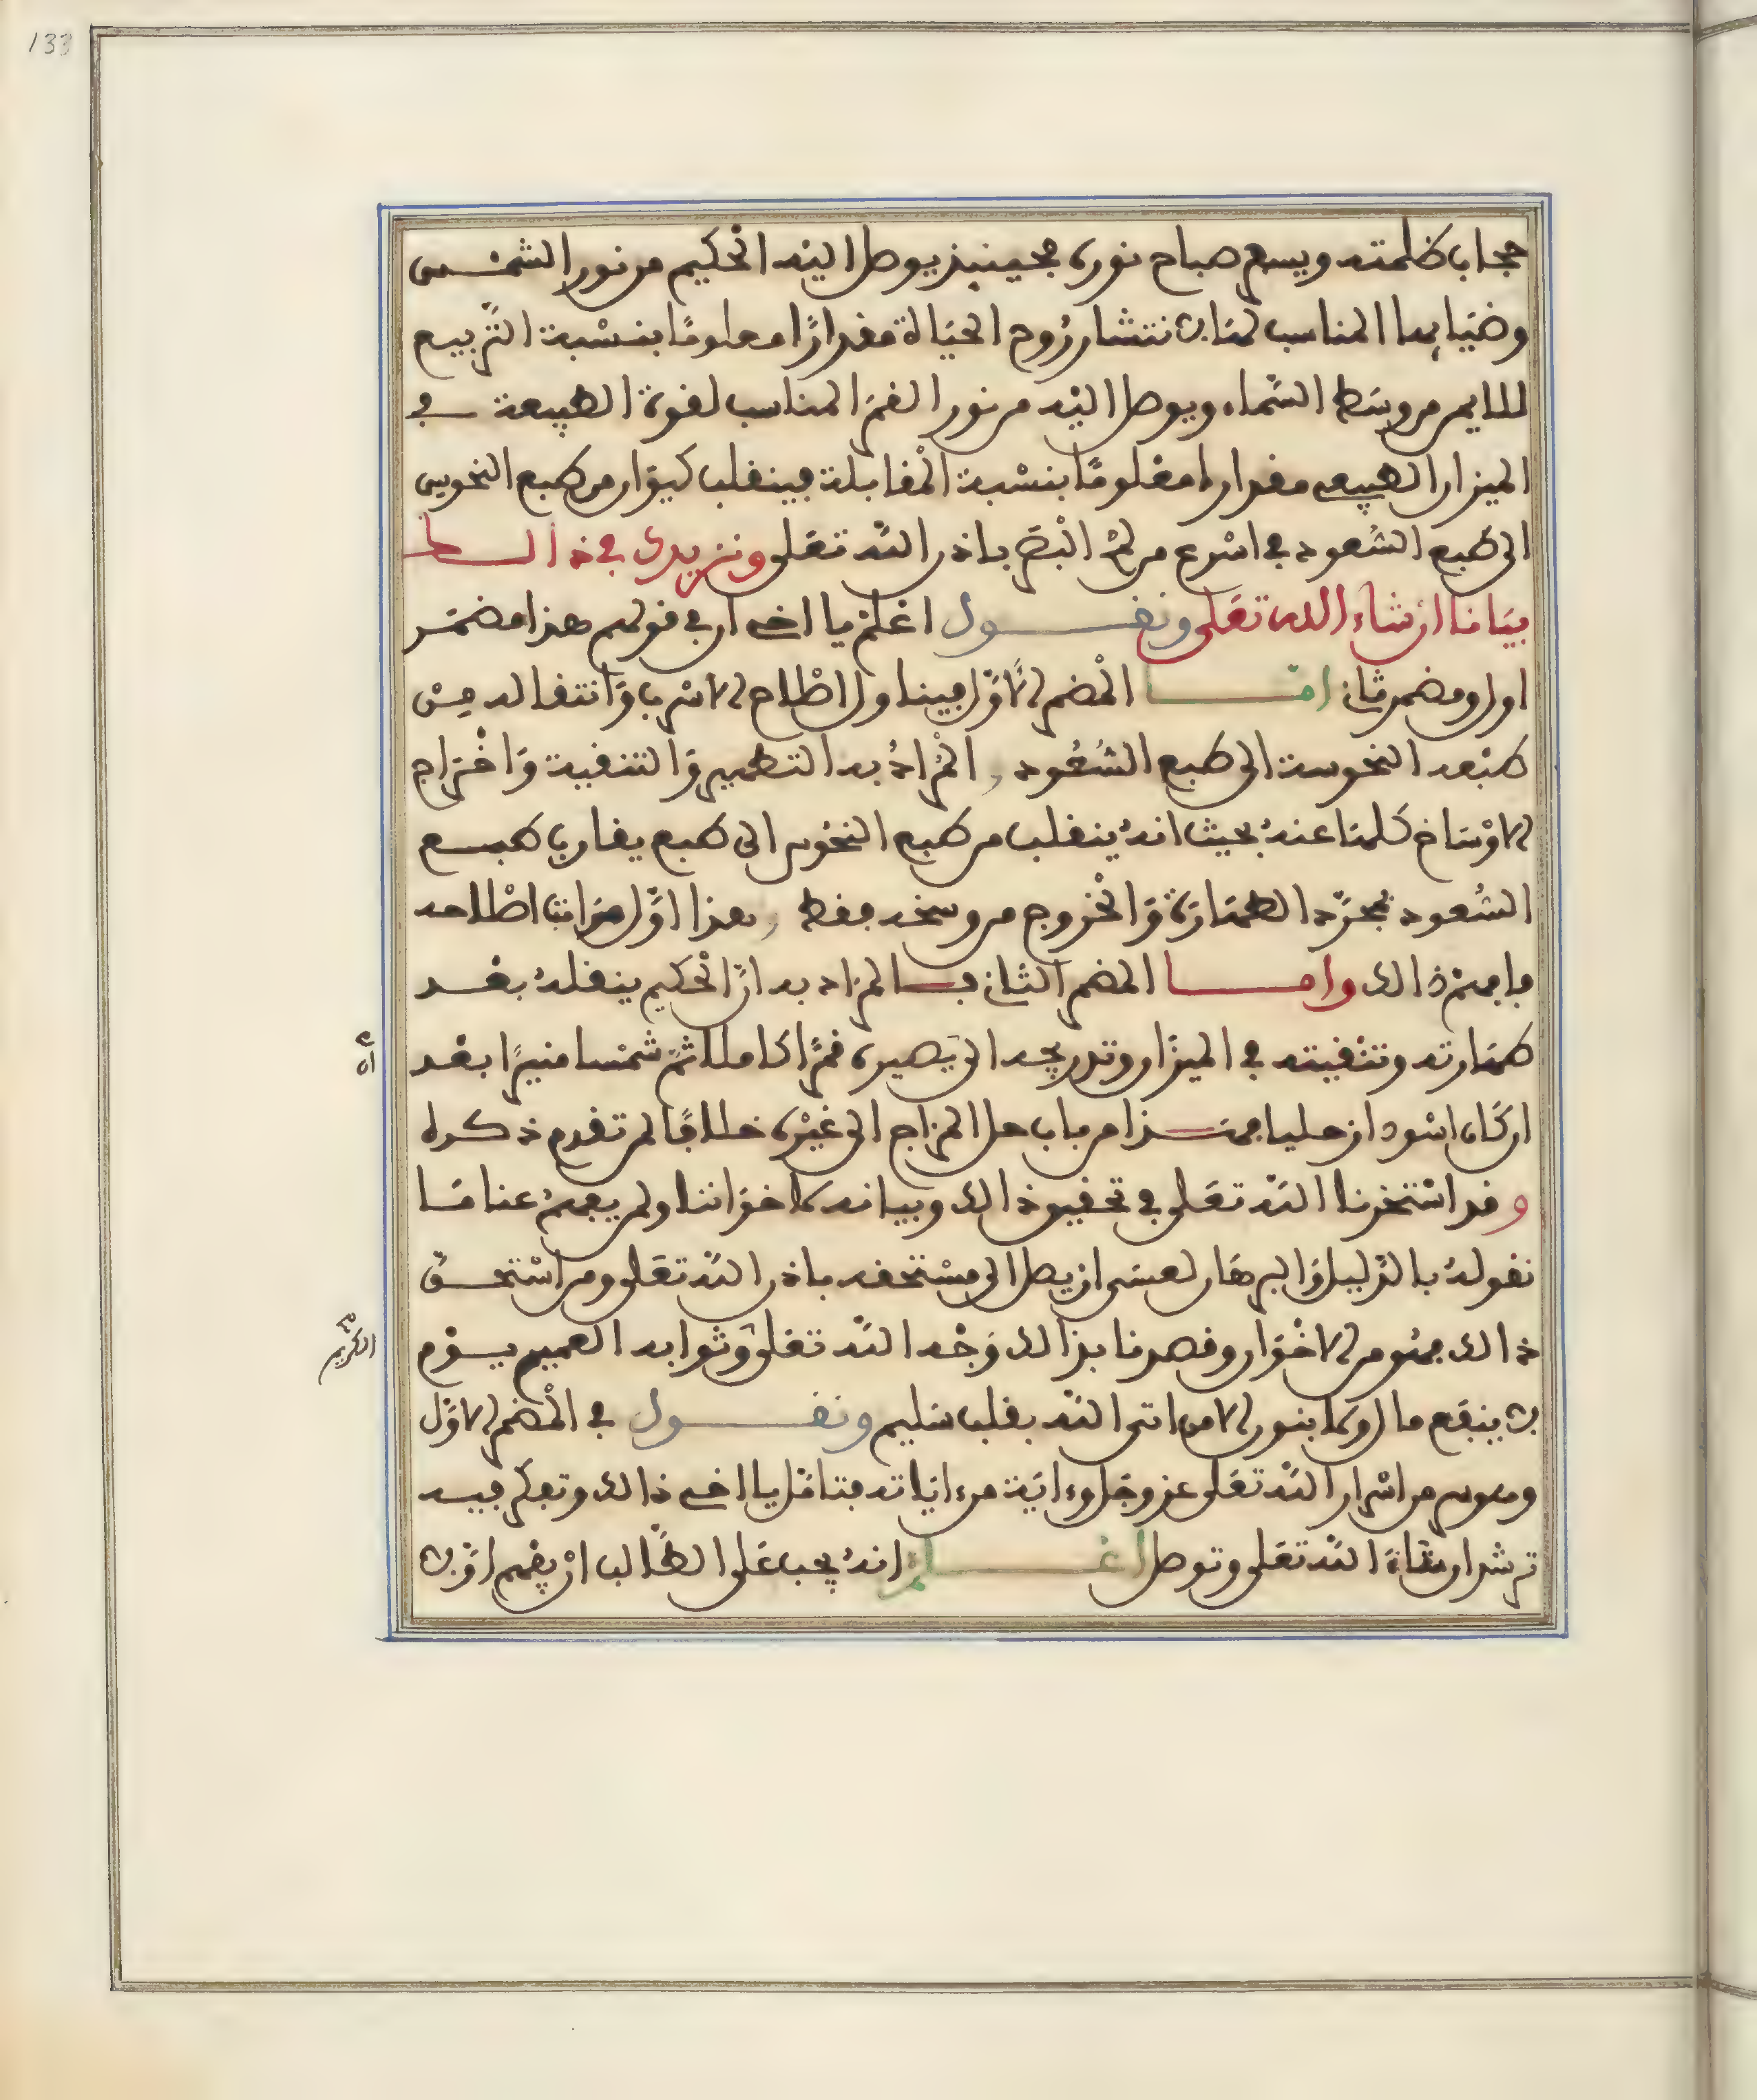 133
حجاب ظلمته ويسع صباح نوره فحينيذ يوصل اليه الحكيم من نور الشمس
وضيايها المناسب لها لانتشار روح الحياة مقدارا معلوما بنسبة التربيع
الملايم من وسط السماء ويوصل اليه من نور القمر المناسب لقوة الطبيعة في
الميزان الطبيعي مقدارا معلوما بنسبة المقابلة فينقلب كيوان من طبع النحوس
الى طبع السعود في اسرع من لمح البصر باذن الله تعلى ونزيدك في ذالك
بيانا ان شاء الله تعلى ونقول اعلم يا اخي ان في قولهم هذا مضمر
اول ومضمر ثان اما المضمر الاول فيتناول اصلاح الاسرب وانتقاله من
طبعه النحوسة الى طبع السعود والمراد به التطهير والتنقية واخراج
الاوساخ كلها عنه بحيث انه ينقلب من طبع النحوس الى طبع يقارب طبع
السعود بمجرد الطهارة والخروج من وسخه فقط وهذا اول مراتب اصلاحه
فافهم ذالك واما المضمر الثاني فالمراد به ان الحكيم ينقله بعد
طهارته وتنقيته في الميزان وتدريجه الى يصيره قمرا كاملا ثم شمسا منيرا بعد
ان
ان كان اسود زحليا فهذا من باب حل المزاج الى غيره خلافا لمن تقدم ذكره
وقد استخرنا الله تعلى في تحقيق ذالك وبيانه كما خواننا ولم يفهم عنا ما
نقوله بالدليل والبرهان لعسى ان يصل الى مستحقه باذن الله تعلى ومن استحق
ذالك فهو من الاخوان وقصدنا بذالك وجه الله تعلى وثوابه العميم يوم
الكريم
لا ينفع مال ولا بنون الا من اتى الله بقلب سليم ونقول في المضمر الاول
وهو سر من اسرار الله تعلى عز وجل وءاية من ءاياته فتامل يا اخي ذالك وتفكر فيه
ترشد ان شاء الله تعلى وتوصل اعلم انه يجب على الطالب ان يفهم اولا